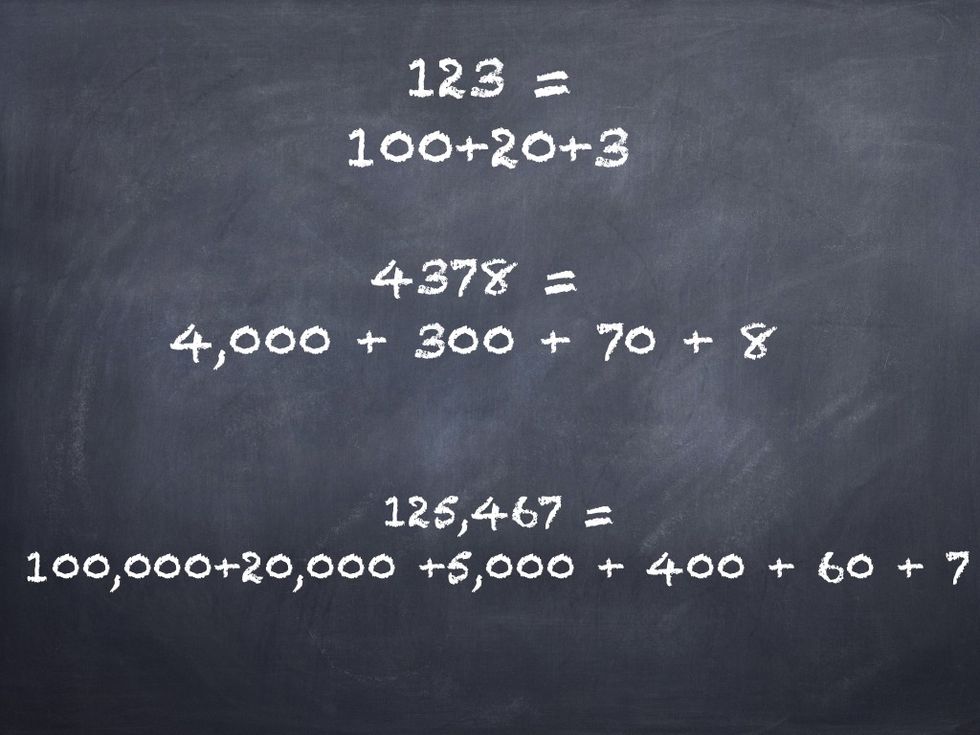 123 =
100+20+3
4378 =
4,000 + 300 + 70 + 8
125,467 =
100,000+20,000 +5,000 + 400 + 60 + 7